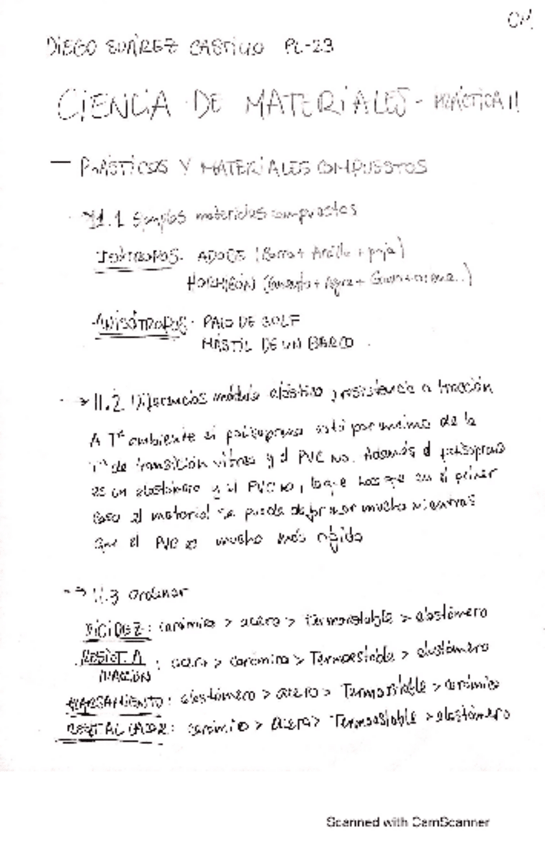 DIEGO SUÁREZ CASTILLO PL-23
CIENCIA DE MATERIALES - PRÁCTICA 11
— PLÁSTICOS Y MATERIALES COMPUESTOS
→ 11.1 Ejemplos materiales compuestos
ISÓTROPOS: ADOBE (Barro + Arcilla + paja)
HORMIGÓN (Cemento + Agua + Grava + arena..)
ANISÓTROPOS: PALO DE GOLF
MÁSTIL DE UN BARCO.
→ 11.2 Diferencias módulo elástico y resistencia a tracción
A Tª ambiente el poliisopreno está por encima de la
Tª de transición vítrea y el PVC no. Además el poliisopreno
es un elastómero y el PVC no, lo que hace que en el primer
caso el material se pueda deformar mucho mientras
que el PVC es mucho más rígido
→ 11.3 Ordenar
RIGIDEZ: cerámico > acero > Termoestable > elastómero
RESIST. A
TRACCIÓN : acero > cerámico > Termoestable > elastómero
: elastómero > acero > Termoestable > cerámico
: cerámico > acero > Termoestable > elastómero
Scanned with CamScanner